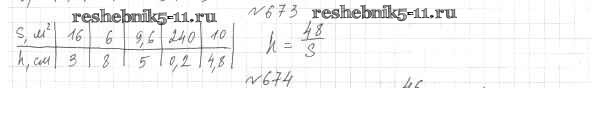 reshebnik5-11.ru
№673
reshebnik5-11.ru
S, м² | 16 | 6 | 9,6 | 240 | 10
h, см | 3 | 8 | 5 | 0,2 | 4,8
h = 48/S
№674